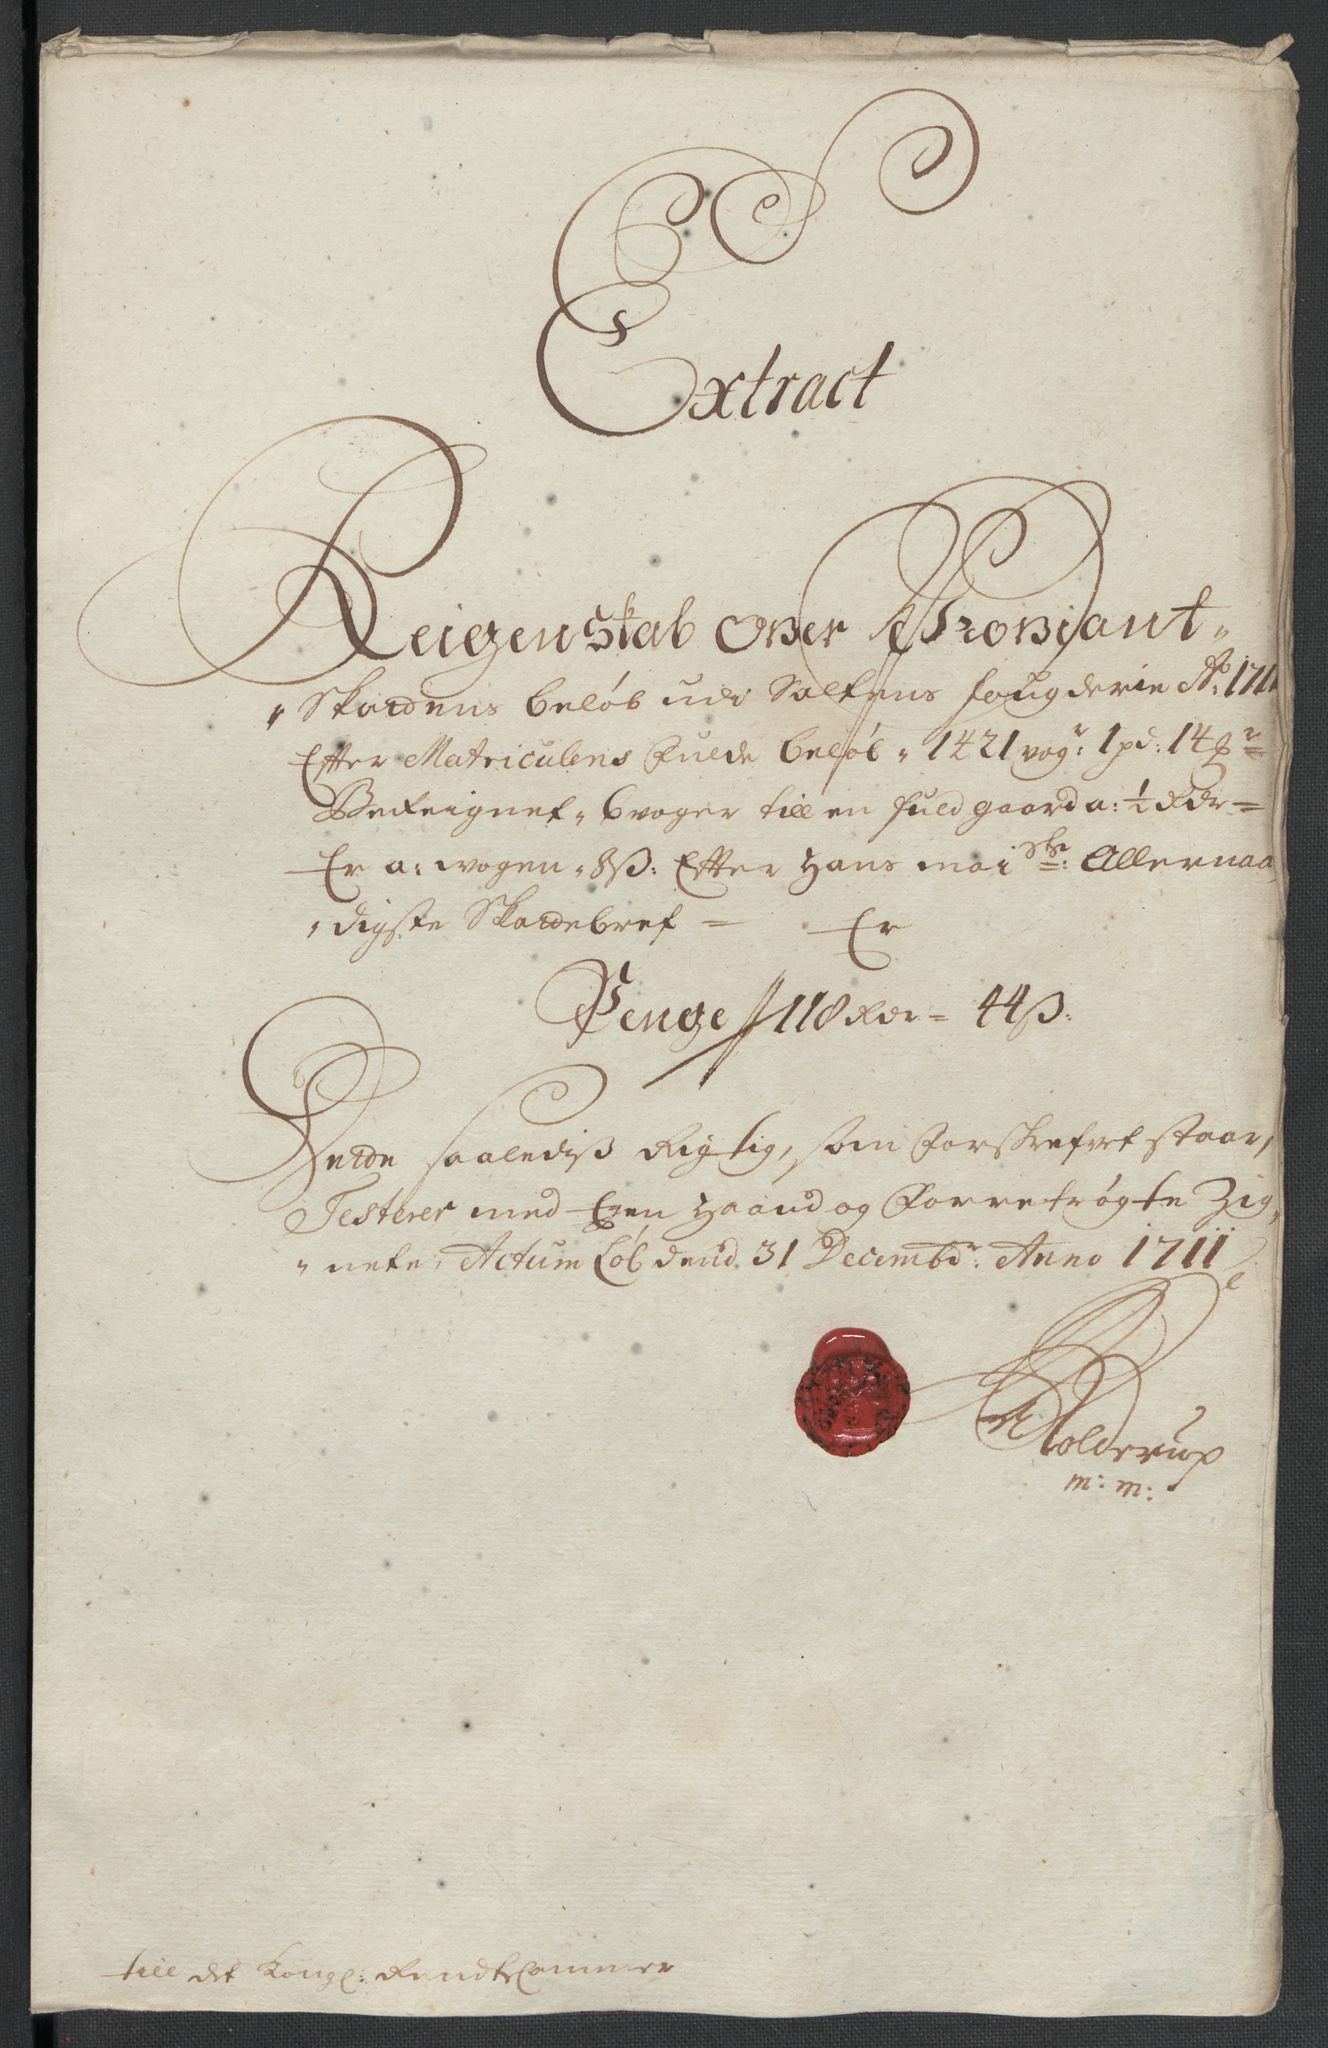 Extract
Reigenskab over Proviant„
„Skatdens beløb udi Saltens fougderie Ao: 1711
Efter Matriculens Fulde beløb „ 1421 vogr: 1 pd: 14
Beteignet „ 6 voger till en fuld gaard a: ½ Rdr=
Er a: wogen „ 8ß: Efter Hans maiſts: Allernaa
„digste Skatdebref = Er
Penge // 118 Rdr = 44ß:
saalediß Rigtig, som forskrefvet staar,
Testerer med Egen Haand og Forretrøgte Zig,
„nete, Actum Løb dend 31 Decembr: Anno 1711
Holderup
m: m:
till det Kongl: RendteCammer